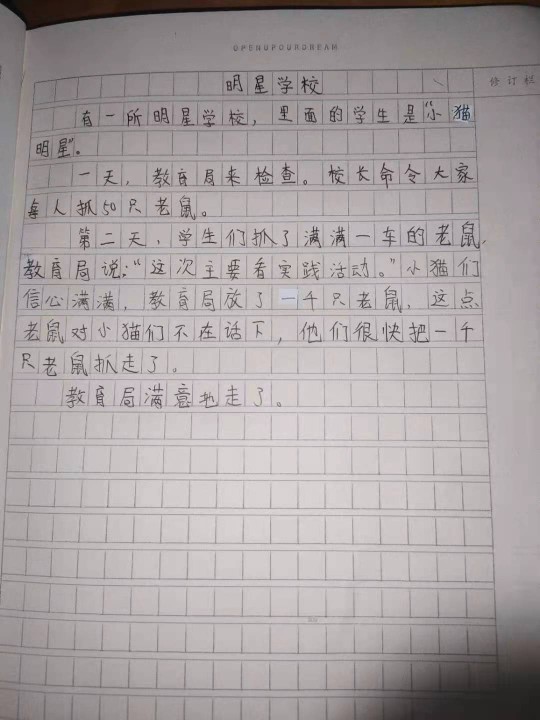 OPENUPOURDREAM
修订栏
明星学校
有一所明星学校，里面的学生是“小猫
明星”。
一天，教育局来检查。校长命令大家
每人抓50只老鼠。
第二天，学生们抓了满满一车的老鼠，
教育局说：“这次主要看实践活动。”小猫们
信心满满，教育局放了一千只老鼠，这点
老鼠对小猫们不在话下，他们很快把一千
只老鼠抓走了。
教育局满意地走了。